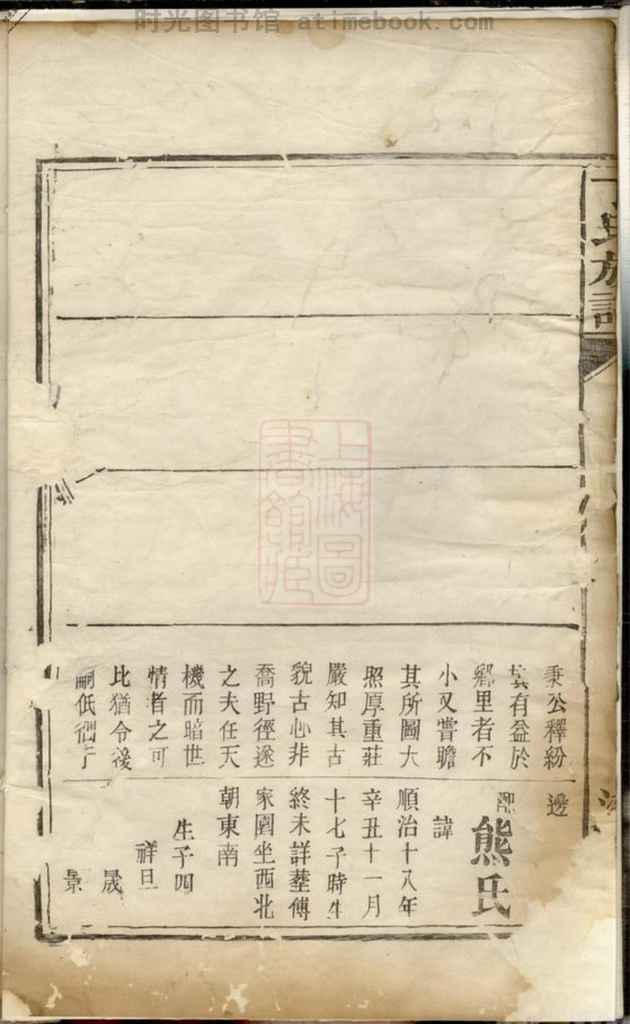 时光图书馆 atimebook.com
氏族
上海圖
書館
秉公釋紛
有益於
鄉里者不
小又嘗瞻
其所圖大
照厚重莊
嚴知其古
貌古心非
喬野徑遂
之夫任天
機而暗世
情者之可
比猶令後
嗣低徊于
邊
配
熊氏
諱
順治十八年
辛丑十一月
十七子時生
終未詳塟傅
家園坐西北
朝東南
生子四
祥旦
晟
景